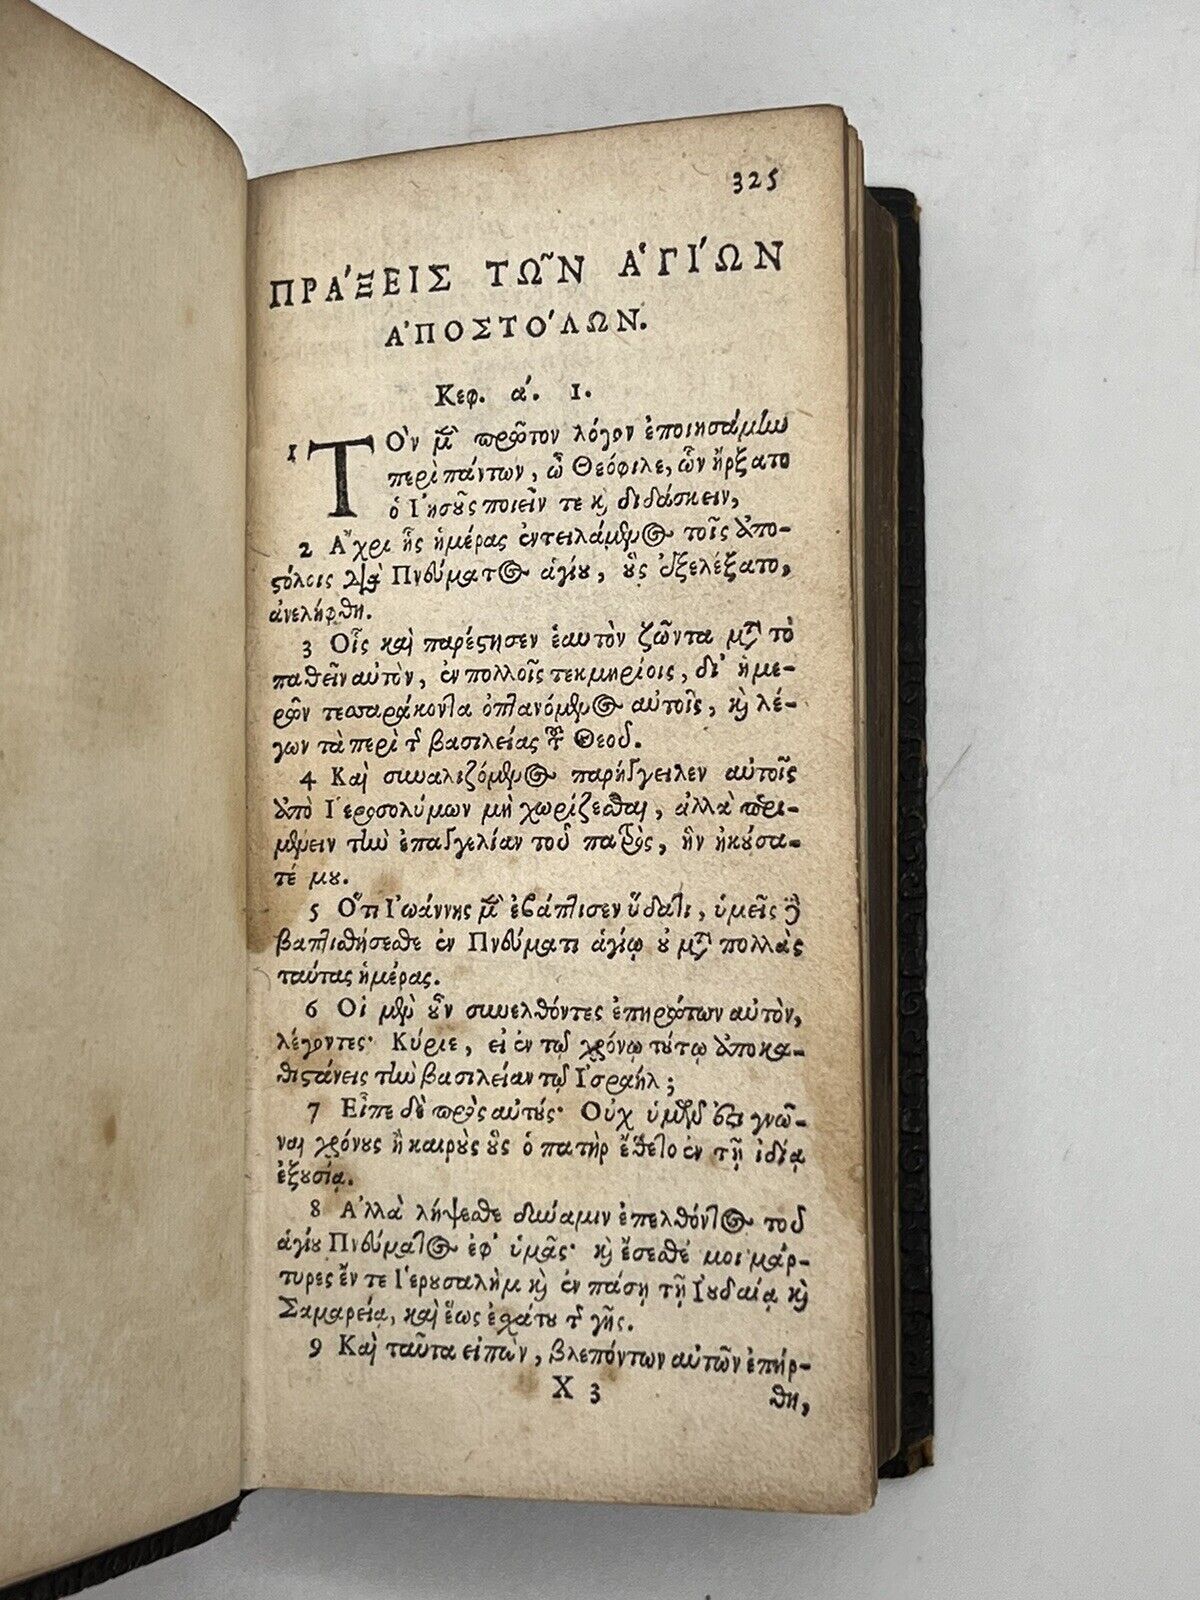 325
ΠΡΑ'ΞΕΙΣ ΤΩ῀Ν Α῾ΓΙ'ΩΝ
Α᾿ΠΟΣΤΟ'ΛΩΝ.
Κεφ. ά. 1.
1 ΤΟ`ν μὲν πρῶτον λόγον ἐποιησάμην
περὶ πάντων, ὦ Θεόφιλε, ὧν ἤρξατο
ὁ Ἰησοῦς ποιεῖν τε καὶ διδάσκειν,
2 Ἄχρι ἧς ἡμέρας ἐντειλάμενος τοῖς ἀπο-
στόλοις διὰ Πνεύματος ἁγίου, οὓς ἐξελέξατο,
ἀνελήφθη.
3 Οἷς καὶ παρέστησεν ἑαυτὸν ζῶντα μετὰ τὸ
παθεῖν αὐτὸν, ἐν πολλοῖς τεκμηρίοις, δι' ἡμε-
ρῶν τεσσαράκοντα ὀπτανόμενος αὐτοῖς, καὶ λέ-
γων τὰ περὶ τῆς βασιλείας τοῦ Θεοῦ.
4 Καὶ συναλιζόμενος παρήγγειλεν αὐτοῖς
ἀπὸ Ἱεροσολύμων μὴ χωρίζεσθαι, ἀλλὰ περι-
μένειν τὴν ἐπαγγελίαν τοῦ πατρὸς, ἣν ἠκούσα-
τέ μου.
5 Ὅτι Ἰωάννης μὲν ἐβάπτισεν ὕδατι, ὑμεῖς δὲ
βαπτισθήσεσθε ἐν Πνεύματι ἁγίῳ οὐ μετὰ πολλὰς
ταύτας ἡμέρας.
6 Οἱ μὲν οὖν συνελθόντες ἐπηρώτων αὐτὸν,
λέγοντες· Κύριε, εἰ ἐν τῷ χρόνῳ τούτῳ ἀποκα-
θιστάνεις τὴν βασιλείαν τῷ Ἰσραήλ;
7 Εἶπε δὲ πρὸς αὐτούς· Οὐχ ὑμῶν ἐστι γνῶ-
ναι χρόνους ἢ καιροὺς οὓς ὁ πατὴρ ἔθετο ἐν τῇ ἰδίᾳ
ἐξουσίᾳ.
8 Ἀλλὰ λήψεσθε δύναμιν ἐπελθόντος τοῦ
ἁγίου Πνεύματος ἐφ' ὑμᾶς· καὶ ἔσεσθέ μοι μάρ-
τυρες ἔν τε Ἱερουσαλὴμ καὶ ἐν πάσῃ τῇ Ἰουδαίᾳ καὶ
Σαμαρείᾳ, καὶ ἕως ἐσχάτου τῆς γῆς.
9 Καὶ ταῦτα εἰπὼν, βλεπόντων αὐτῶν ἐπήρ-
X 3 θη,